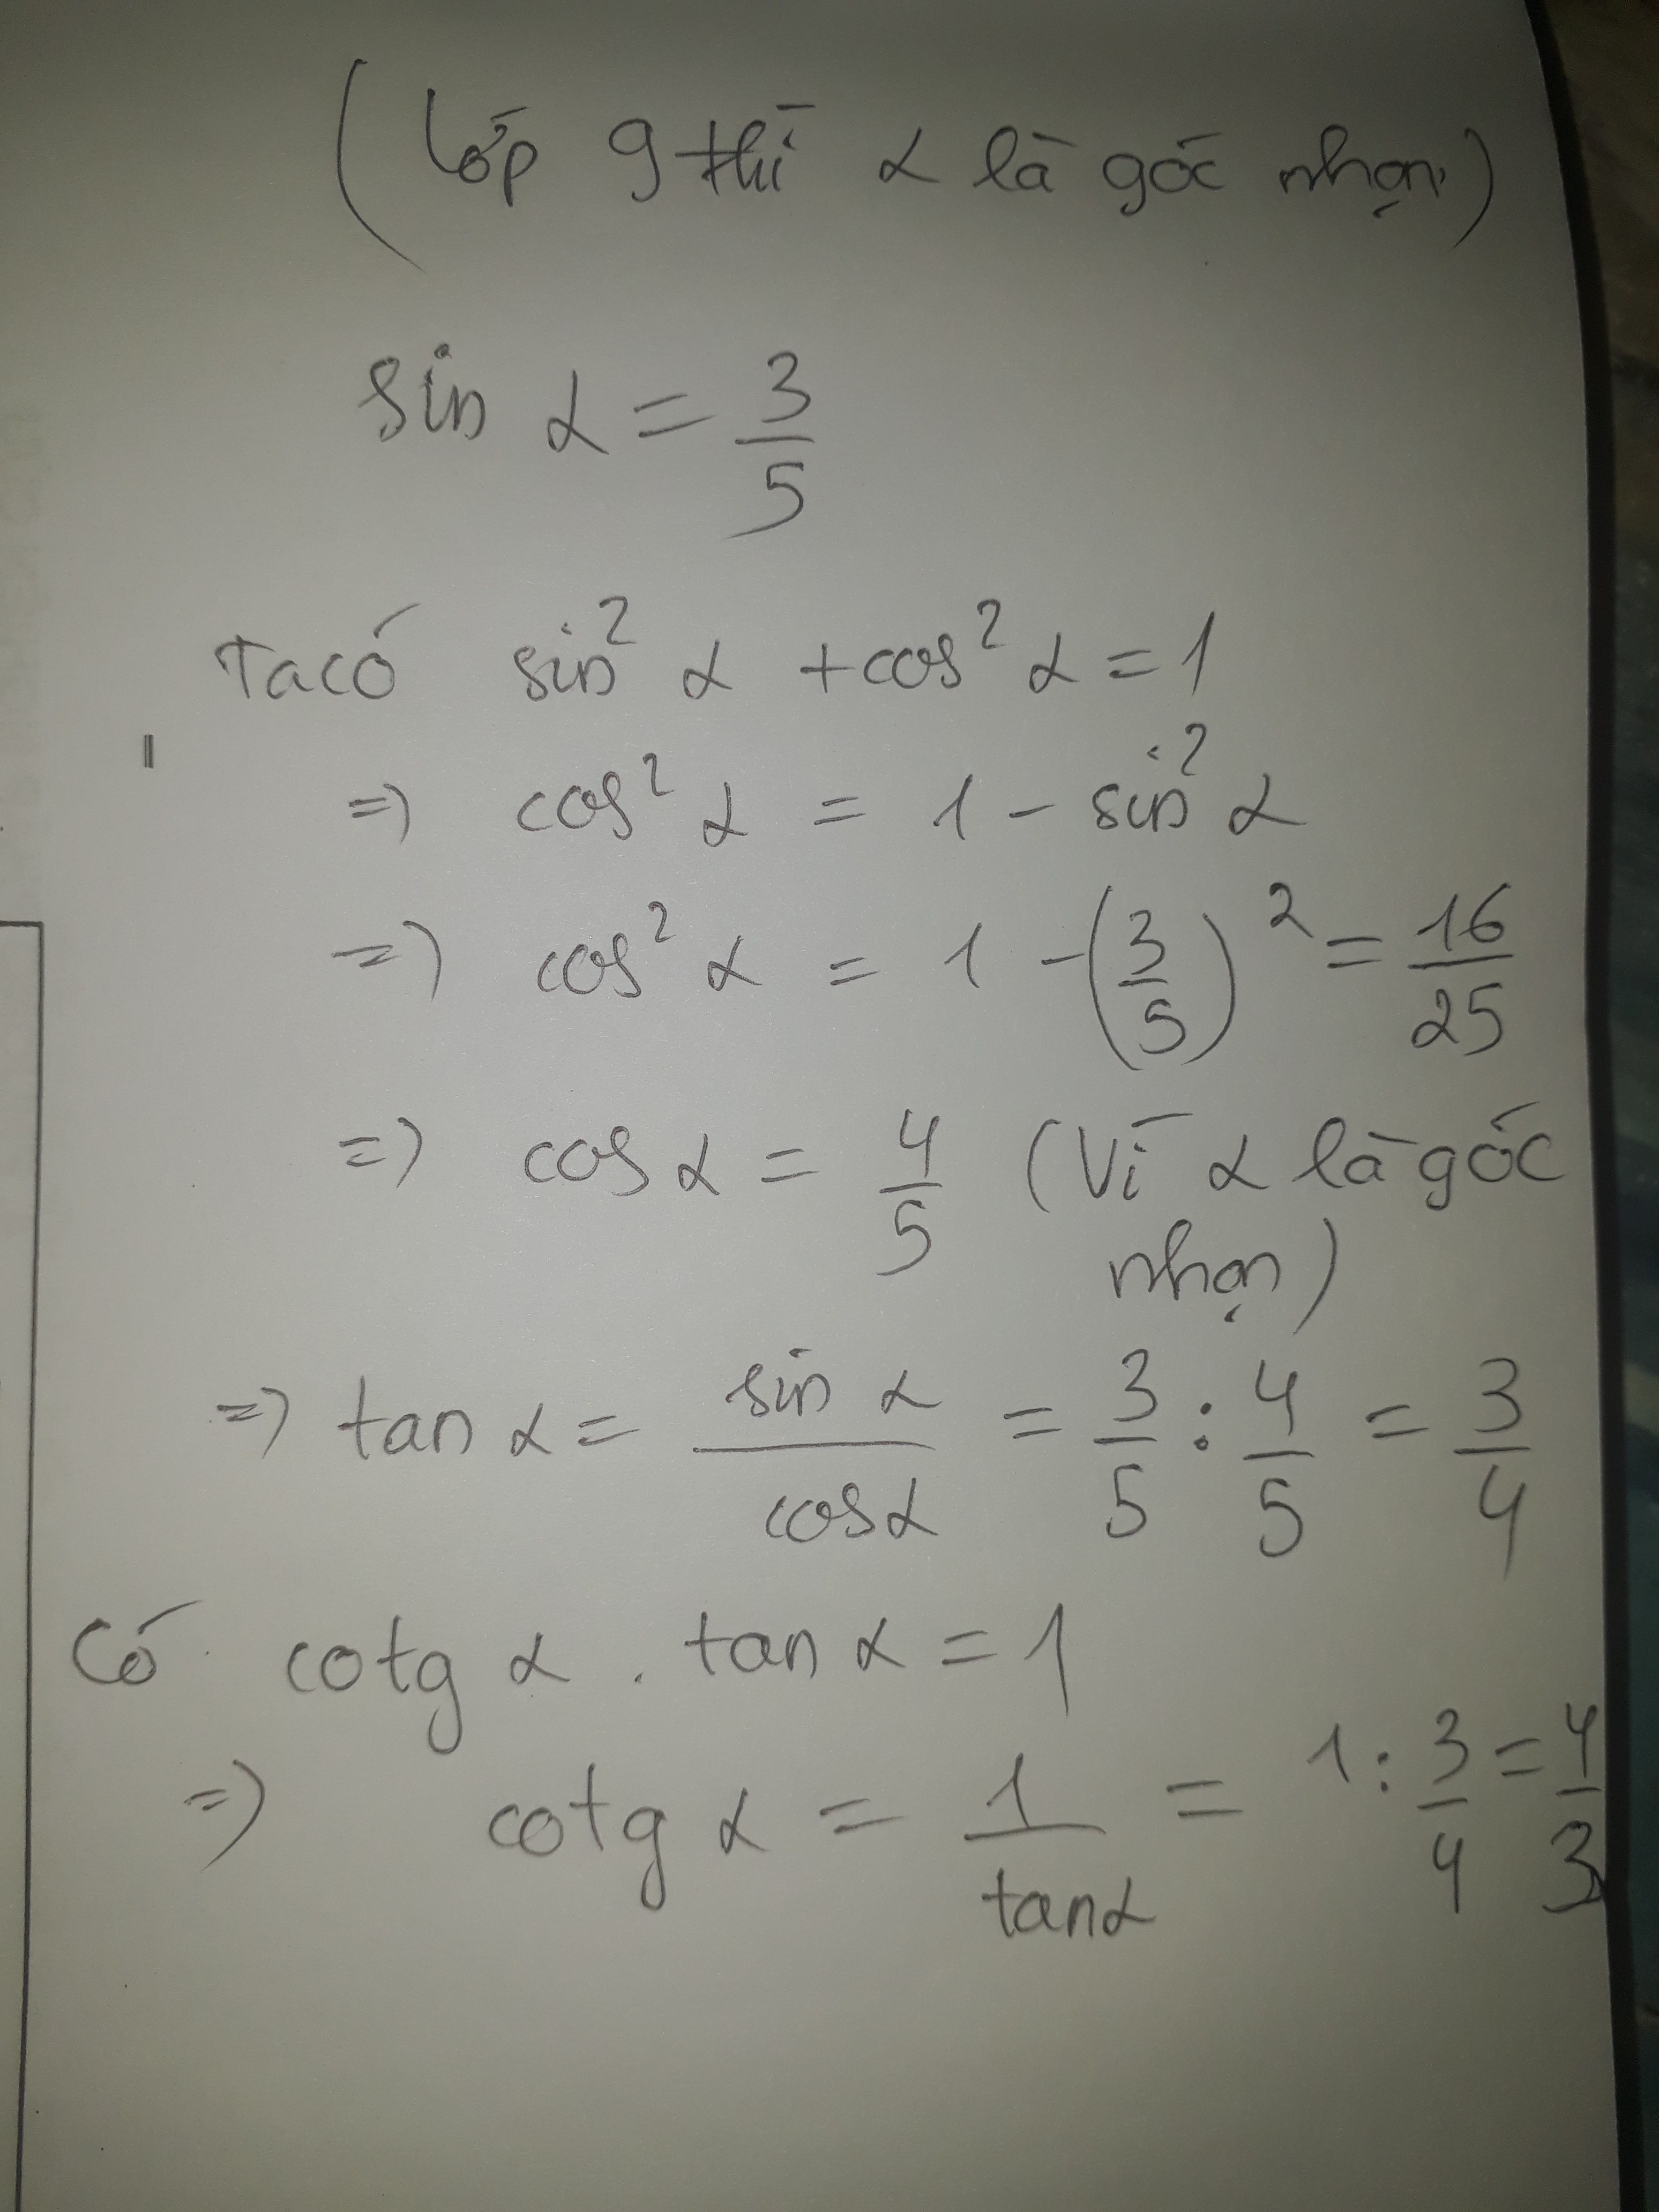 (Lớp 9 thì α là góc nhọn)
sin α = 3/5
Ta có sin² α + cos² α = 1
=> cos² α = 1 - sin² α
=> cos² α = 1 - (3/5)² = 16/25
=> cos α = 4/5 (Vì α là góc
nhọn)
=> tan α = sin α/cos α = 3/5 : 4/5 = 3/4
Có cotg α . tan α = 1
=> cotg α = 1/tan α = 1 : 3/4 = 4/3